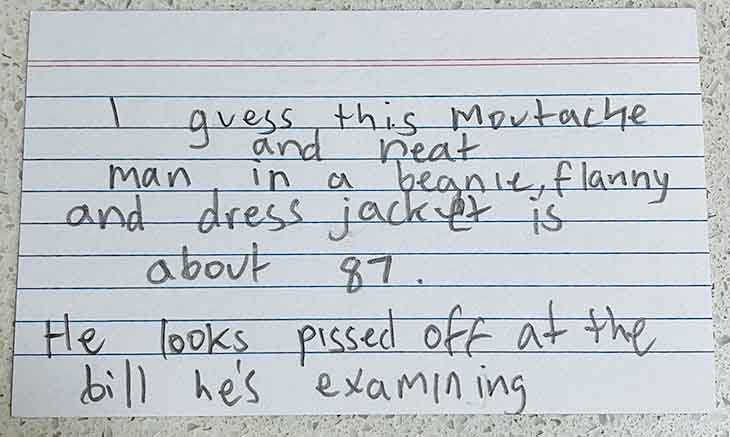 I guess this moutache
and neat
man in a beanie, flanny
and dress jacket is
about 87.
He looks pissed off at the
bill he's examining